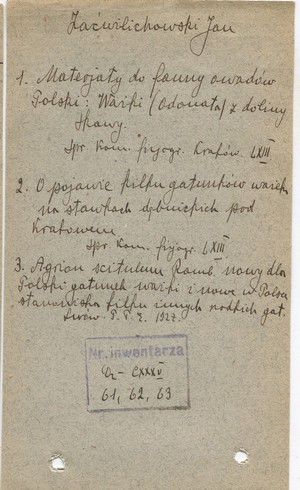 Zaćwilichowski Jan
1. Materjały do fauny owadów
Polski: Ważki (Odonata) z doliny
Skawy.
Spr. Kom. fizjogr. Kraków. LXIII
2. O pojawie kilku gatunków ważek
na stawkach dębnickich pod
Krakowem
Spr. Kom. fizjogr. LXIII
3. Agrion scitulum Ramb. nowy dla
Polski gatunek ważki i nowe w Polsce
stanowiska kilku innych rzadkich gat.
Lwów. P. P. E. 1927.
Nr. inwentarza
CXXXV
61, 62, 63